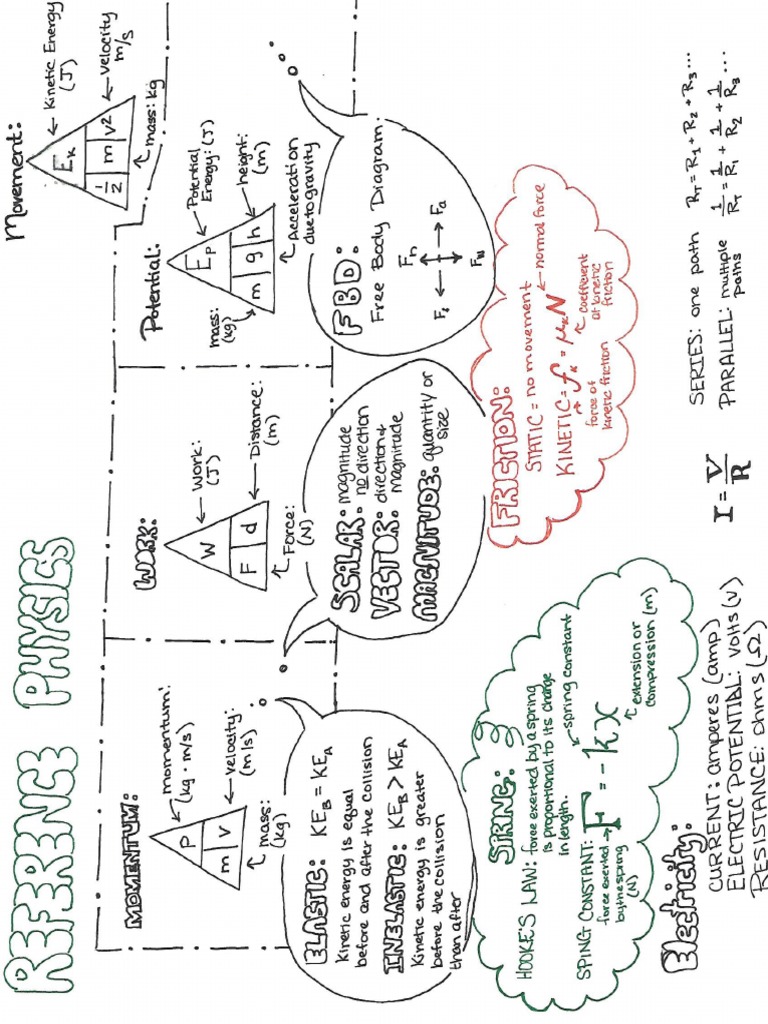 REFERENCE PHYSICS
MOMENTUM:
P
m | v
momentum:
(kg · m/s)
velocity:
(m/s)
mass:
(kg)
WORK:
W
F | d
Work:
(J)
Distance:
(m)
Force:
(N)
Potential:
Ep
m | g | h
Potential
Energy: (J)
height:
(m)
mass:
(kg)
Acceleration
due to gravity
Movement:
Ek
1/2 | m | v²
Kinetic Energy
(J)
velocity
m/s
mass: kg
ELASTIC: KEB = KEA
Kinetic energy is equal
before and after the collision
INELASTIC: KEB > KEA
Kinetic energy is greater
before the collision
than after
SCALAR: magnitude
no direction
VECTOR: direction +
magnitude
MAGNITUDE: quantity or
size
FBD:
Free Body Diagram:
Fn
Fa
FN
SPRING:
HOOKE'S LAW: force exerted by a spring
is proportional to its change
in length.
SPING CONSTANT: F = -kx
spring constant
force exerted
by the spring
(N)
extension or
compression (m)
FRICTION:
STATIC = no movement
KINETIC = fk = μkN
normal force
force of
kinetic friction
coefficient
of kinetic
friction
Electricity:
CURRENT: amperes (amp)
ELECTRIC POTENTIAL: volts (v)
RESISTANCE: ohms (Ω)
I = V/R
SERIES: one path RT = R1 + R2 + R3...
PARALLEL: multiple
paths
1/RT = 1/R1 + 1/R2 + 1/R3...